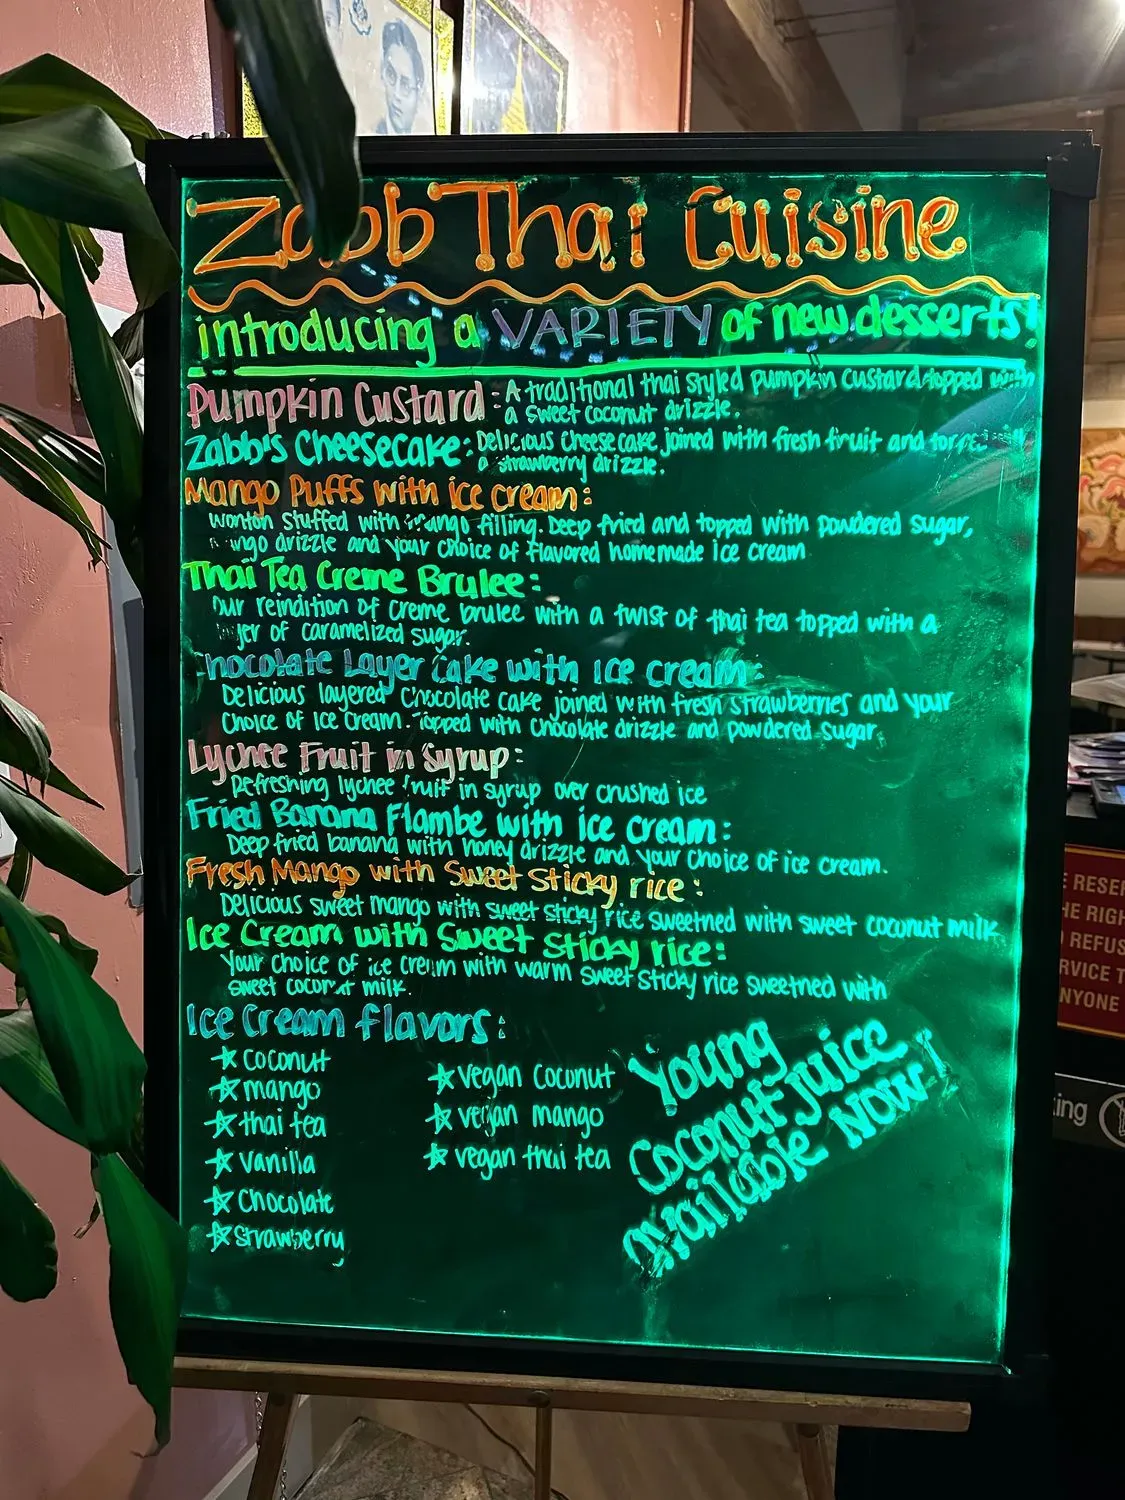 Zabb Thai Cuisine
introducing a VARIETY of new desserts!
Pumpkin Custard: A traditional thai styled pumpkin custard topped with
a sweet coconut drizzle.
Zabb's Cheesecake: Delicious cheesecake joined with fresh fruit and
a strawberry drizzle.
Mango Puffs with ice cream:
wonton stuffed with mango filling. Deep fried and topped with powdered sugar,
mango drizzle and your choice of flavored homemade ice cream
Thai Tea Creme Brulee:
Our reindition of creme brulee with a twist of thai tea topped with a
layer of caramelized sugar.
Chocolate Layer Cake with Ice cream:
Delicious layered chocolate cake joined with fresh strawberries and your
choice of ice cream. Topped with chocolate drizzle and powdered sugar.
Lychee Fruit in Syrup:
Refreshing lychee fruit in syrup over crushed ice
Fried Banana Flambe with ice cream:
Deep fried banana with honey drizzle and your choice of ice cream.
Fresh Mango with Sweet Sticky rice:
Delicious sweet mango with sweet sticky rice sweetned with sweet coconut milk
Ice Cream with Sweet Sticky rice:
Your choice of ice cream with warm sweet sticky rice sweetned with
sweet coconut milk.
Ice Cream flavors:
☆ coconut
☆ mango
☆ thai tea
☆ vanilla
☆ chocolate
☆ strawberry
☆ vegan coconut
☆ vegan mango
☆ vegan thai tea
Young
Coconut juice
available NOW!
E RESER
HE RIGH
REFUS
RVICE T
NYONE
ing